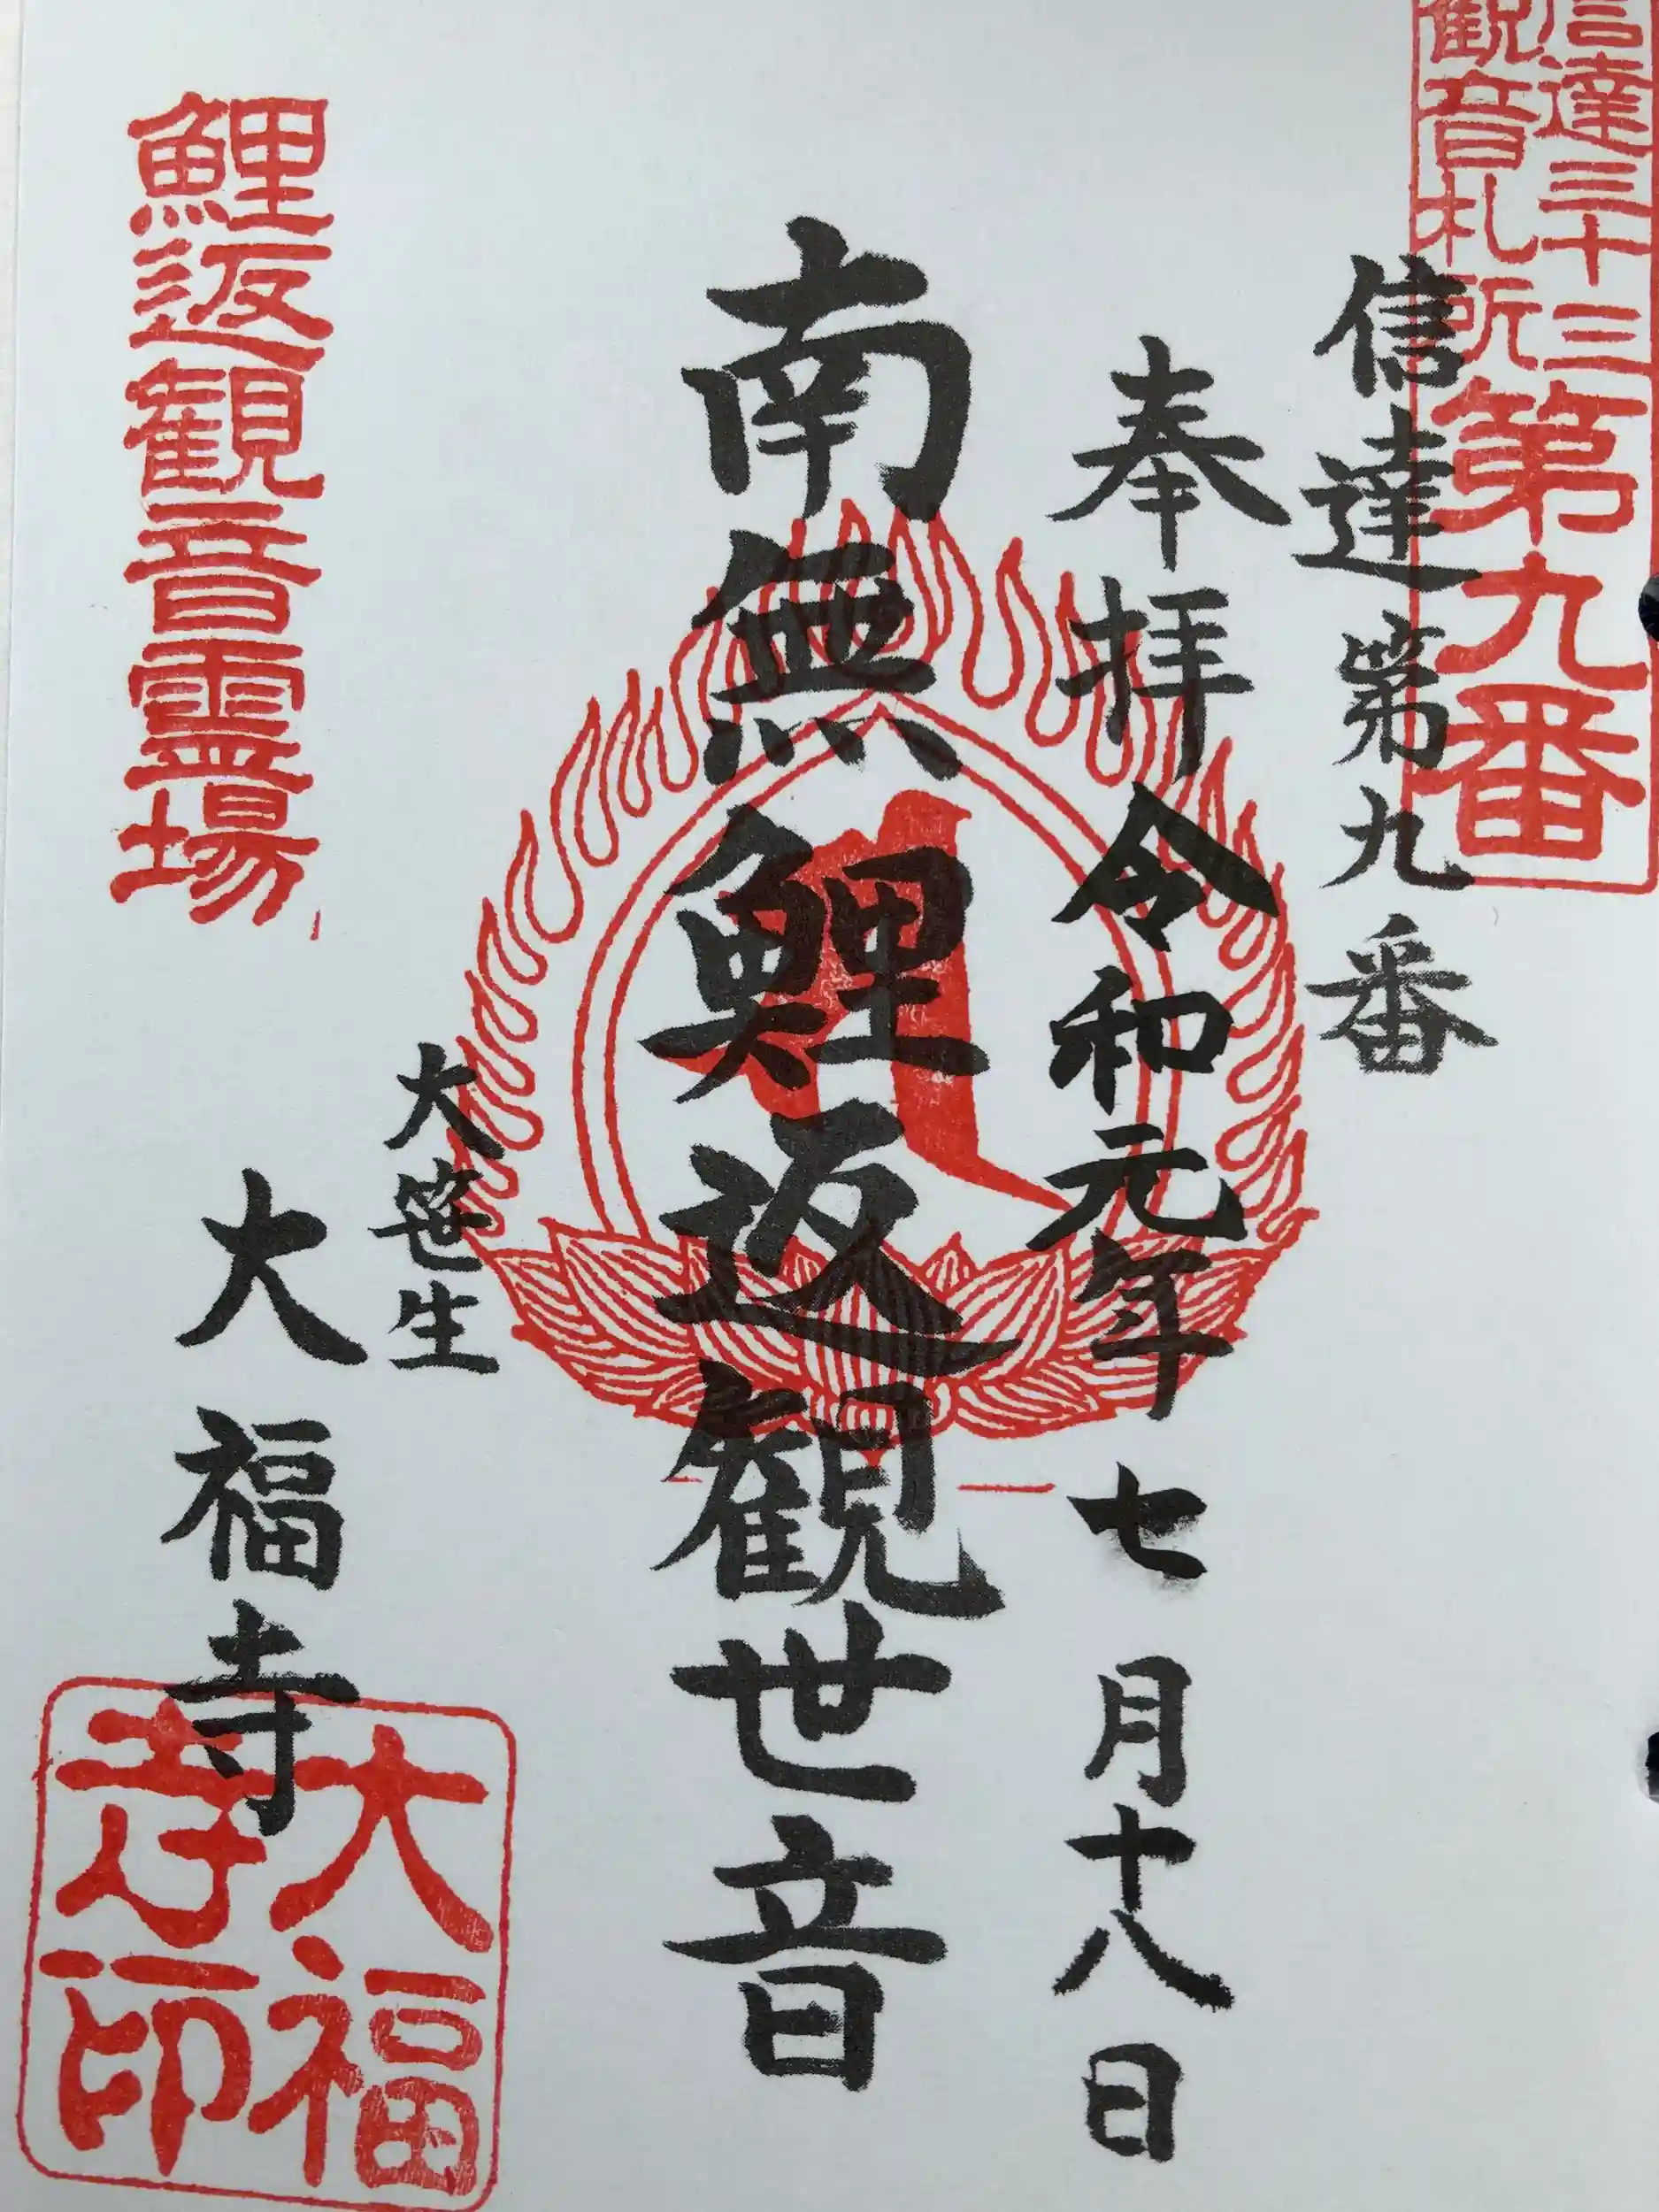 信達三十三
観音札所
第九番
信達第九番
奉拝 令和元年七月十八日
南無鯉返観世音
大笹生
大福寺
鯉返観音霊場
大福
寺印